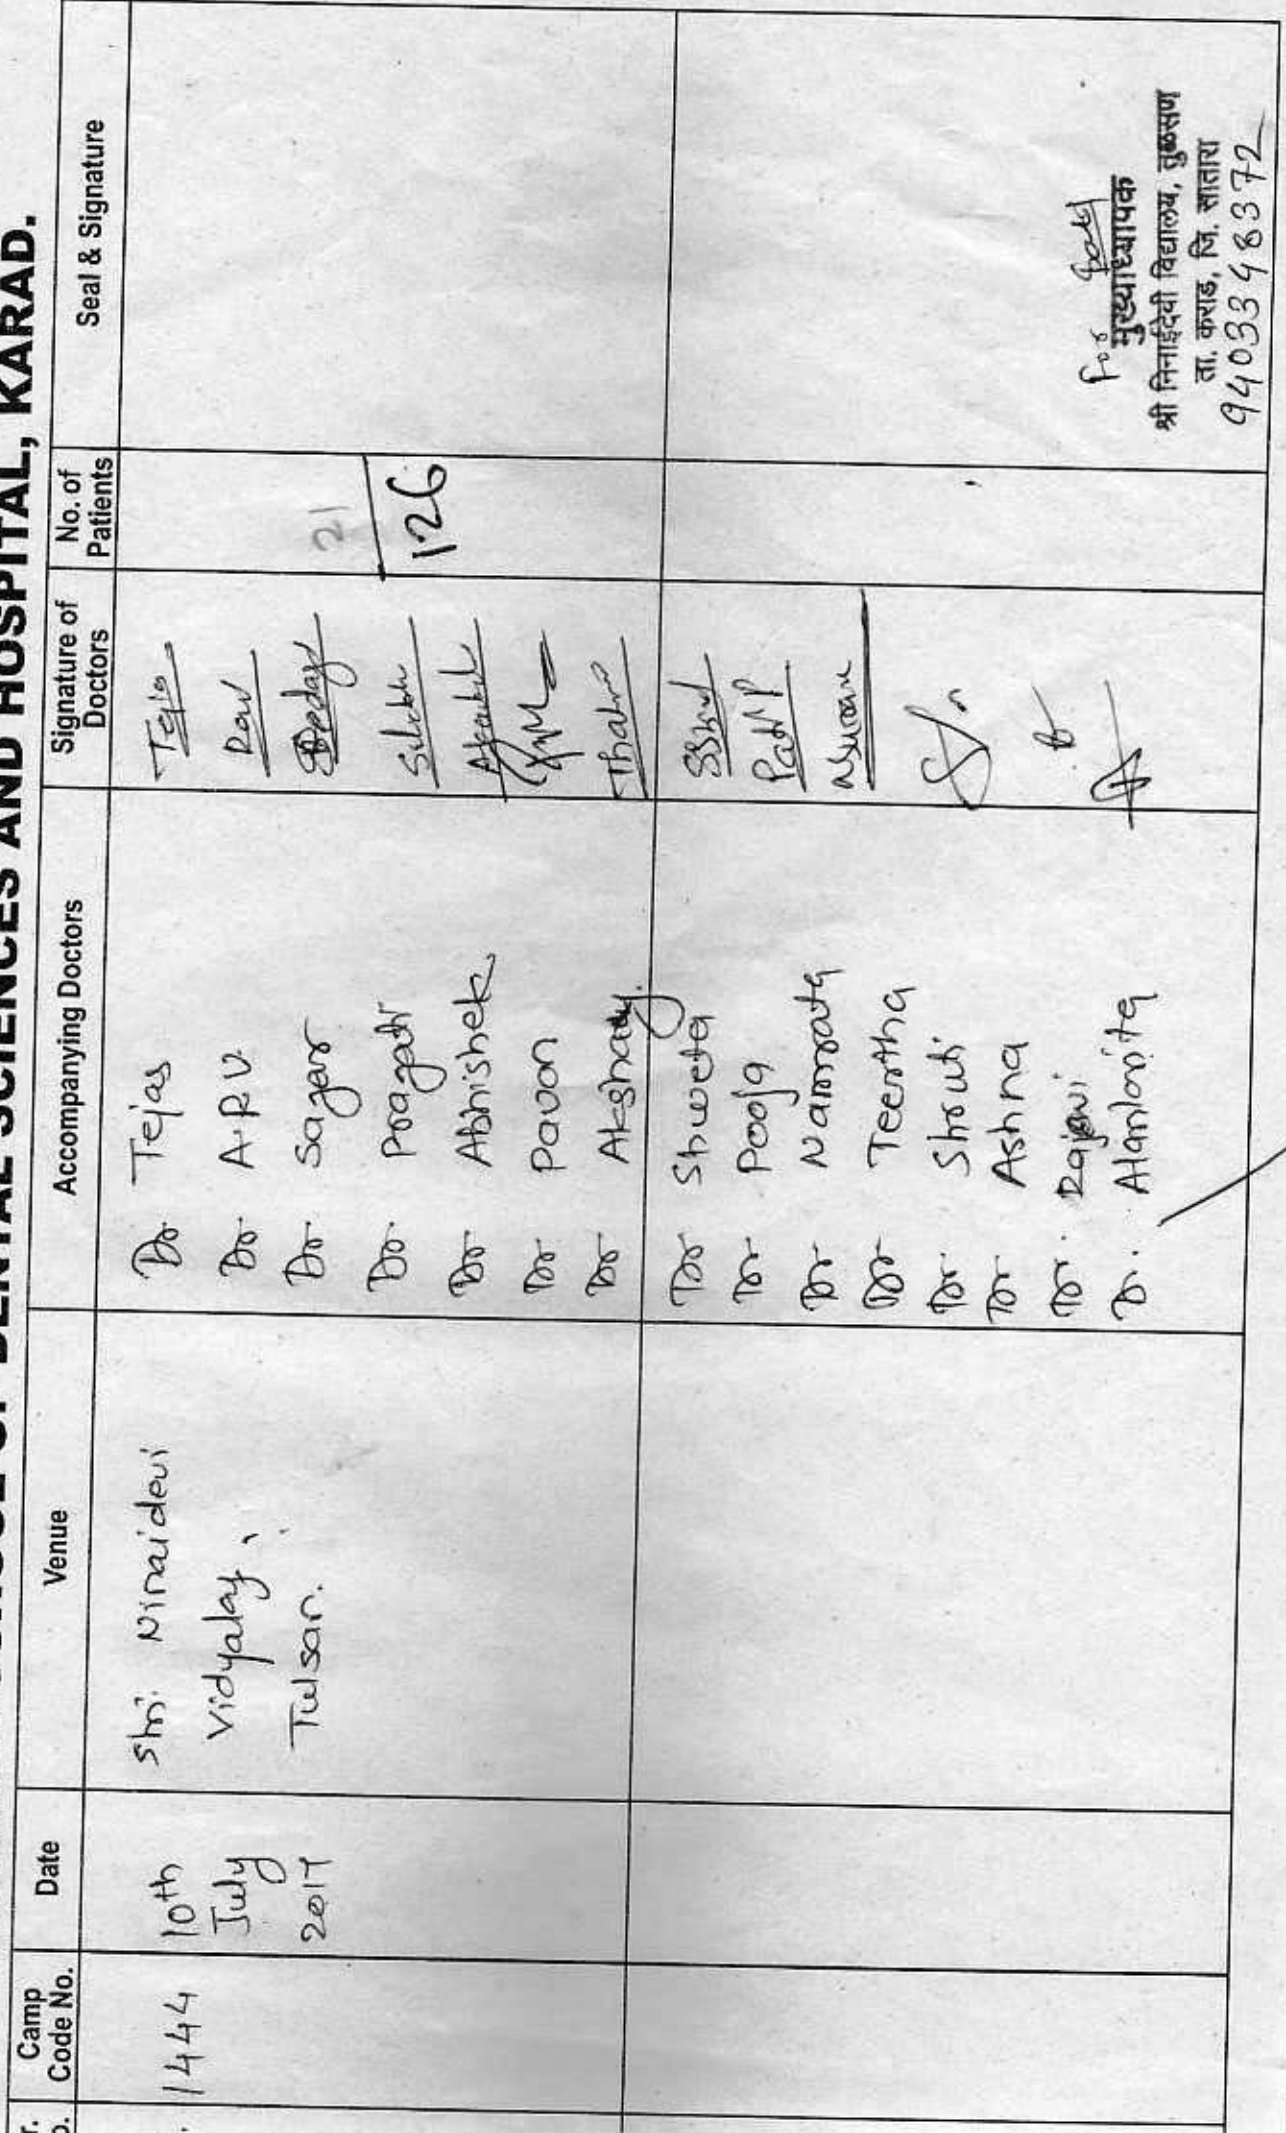 OF DENTAL SCIENCES AND HOSPITAL, KARAD.
Camp Code No.
Date
Venue
Accompanying Doctors
Signature of Doctors
No. of Patients
Seal & Signature
1444
10th
July
2017
Shri. Ninaidevi
Vidyalay,
Tulsan.
Dr Tejas
Dr. A.P.V.
Dr. Sagar
Dr. Pragati
Dr. Abhishek
Dr Pavan
Dr Akshay.
Dr Shweta
Dr Pooja
Dr Namrata
Dr Teertha
Dr. Shruti
Dr Ashna
Dr. Rajavi
Dr.
Tejas
21
126
For
मुख्याध्यापक
श्री निनाईदेवी विद्यालय, तुळसण
ता. कराड, जि. सातारा
9403348372